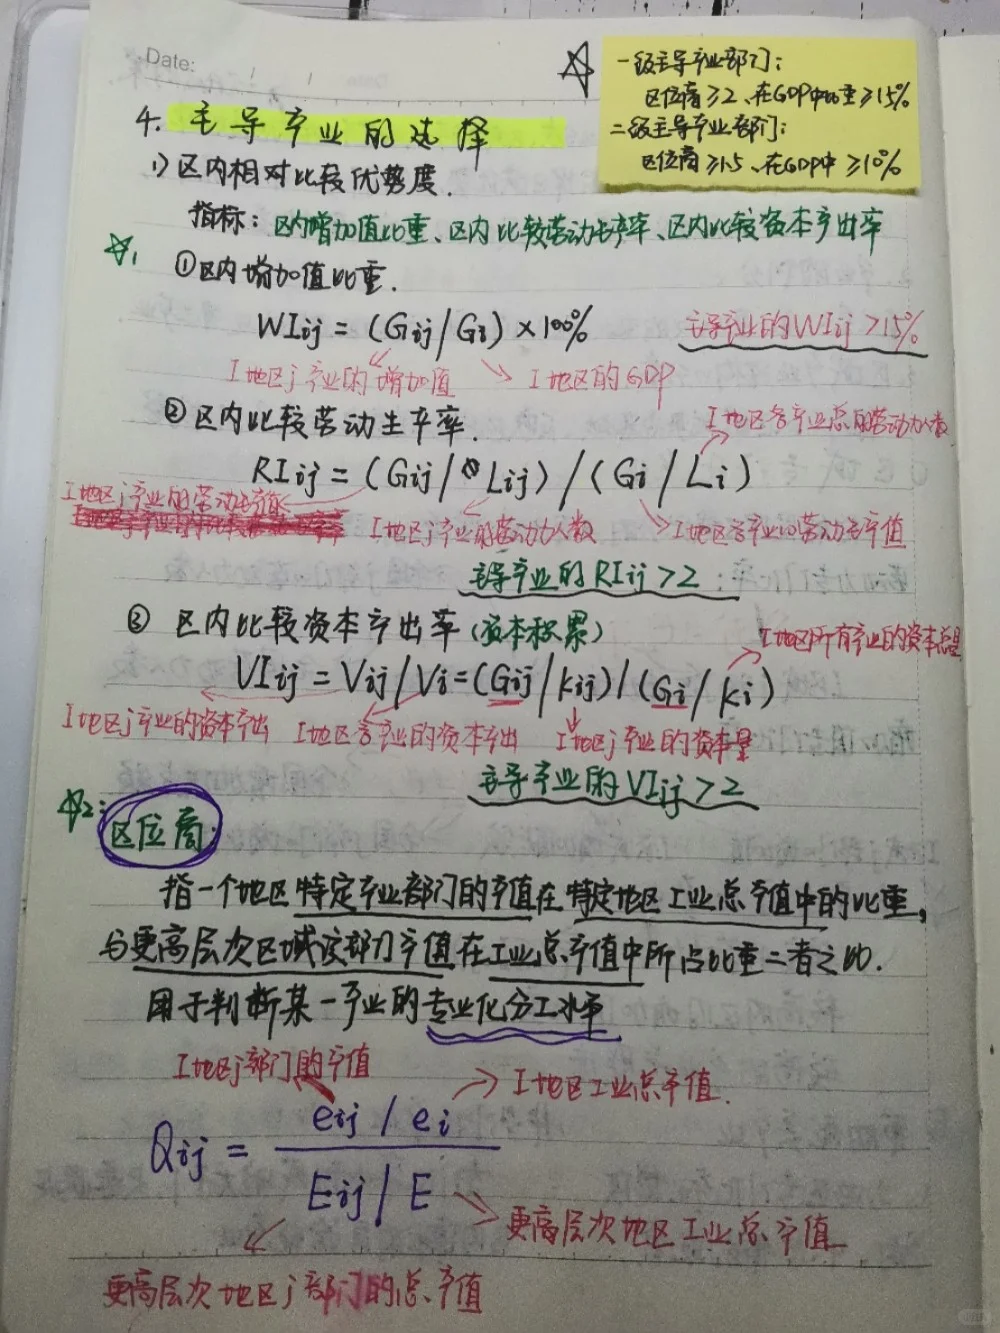 Date:
一级主导产业部门:
区位商≥2、在GDP中比重≥15%
二级主导产业部门:
区位商≥1.5、在GDP中≥10%
4. 主导产业的选择
1) 区内相对比较优势度.
指标: 区内增加值比重、区内比较劳动生产率、区内比较资本产出率
☆1
①区内增加值比重.
WIij = (Gij/Gi) ×100%
主导产业的WIij >15%
I地区j产业的增加值
I地区的GDP
②区内比较劳动生产率.
I地区各产业总的劳动力人数
RIij = (Gij/Lij) / (Gi/Li)
I地区j产业的劳动生产值
I地区j产业的劳动力人数
I地区各产业的劳动生产值
主导产业的RIij >2
③ 区内比较资本产出率(资本积累)
I地区所有产业的资本总量
VIij = Vij/Vi=(Gij/kij)/(Gi/ki)
I地区j产业的资本产出
I地区各产业的资本产出
I地区j产业的资本量
主导产业的VIij >2
☆2:
区位商:
指一个地区特定产业部门的产值在特定地区工业总产值中的比重,
与更高层次区域该部门产值在工业总产值中所占比重二者之比.
用于判断某一产业的专业化分工水平
I地区j部门的产值
I地区工业总产值.
Qij = eij / ei
Eij / E
更高层次地区工业总产值
更高层次地区j部门的总产值